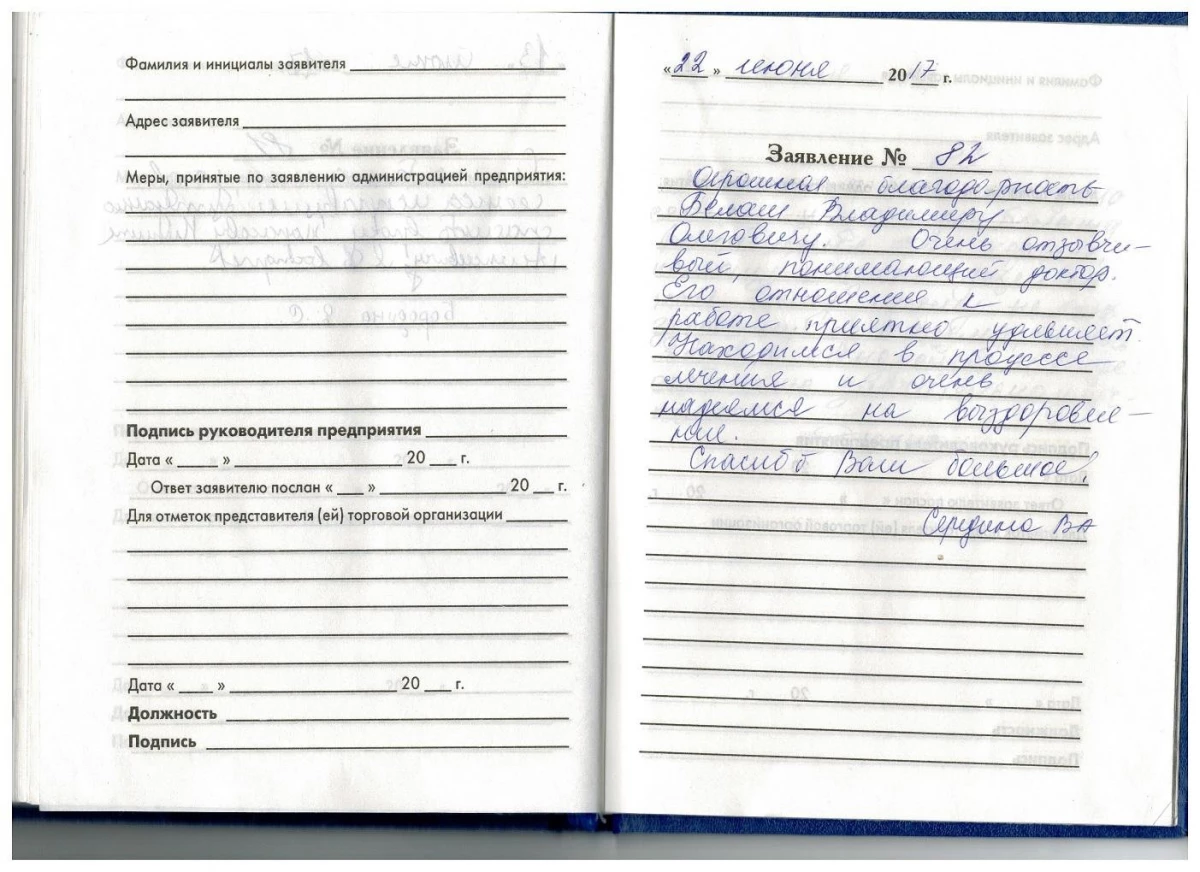 Фамилия и инициалы заявителя
Адрес заявителя
Меры, принятые по заявлению администрацией предприятия:
Подпись руководителя предприятия
Дата « » 20 г.
Ответ заявителю послан « » 20 г.
Для отметок представителя (ей) торговой организации
Дата « » 20 г.
Должность
Подпись
«22» июня 2017 г.
Заявление № 82
Огромная благодарность
Белаш Владимиру
Олеговичу. Очень отзывчи-
вый, понимающий доктор.
Его отношения к
работе приятно удивляет.
Находимся в процессе
лечения и очень
надеямся на выздоровле-
ние.
Спасибо Вам большое!
Середина ВА